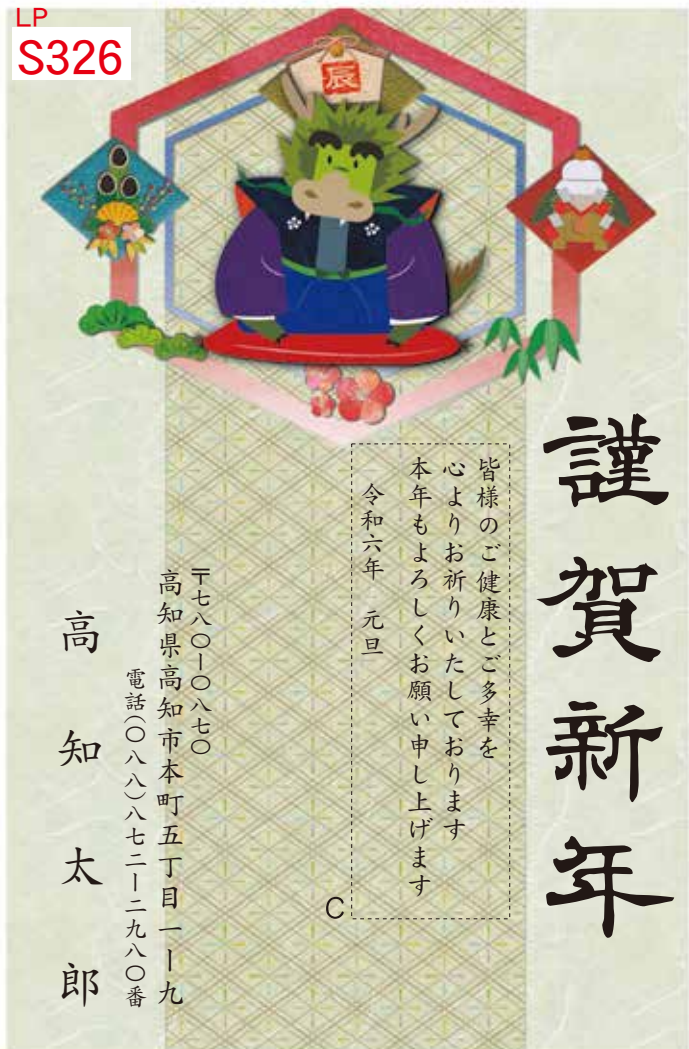 LP
S326
辰
謹賀新年
皆様のご健康とご多幸を
心よりお祈りいたしております
本年もよろしくお願い申し上げます
令和六年　元旦
C
〒七八〇ー〇八七〇
高知県高知市本町五丁目一ー九
電話(〇八八)八七二ー二九八〇番
高知太郎